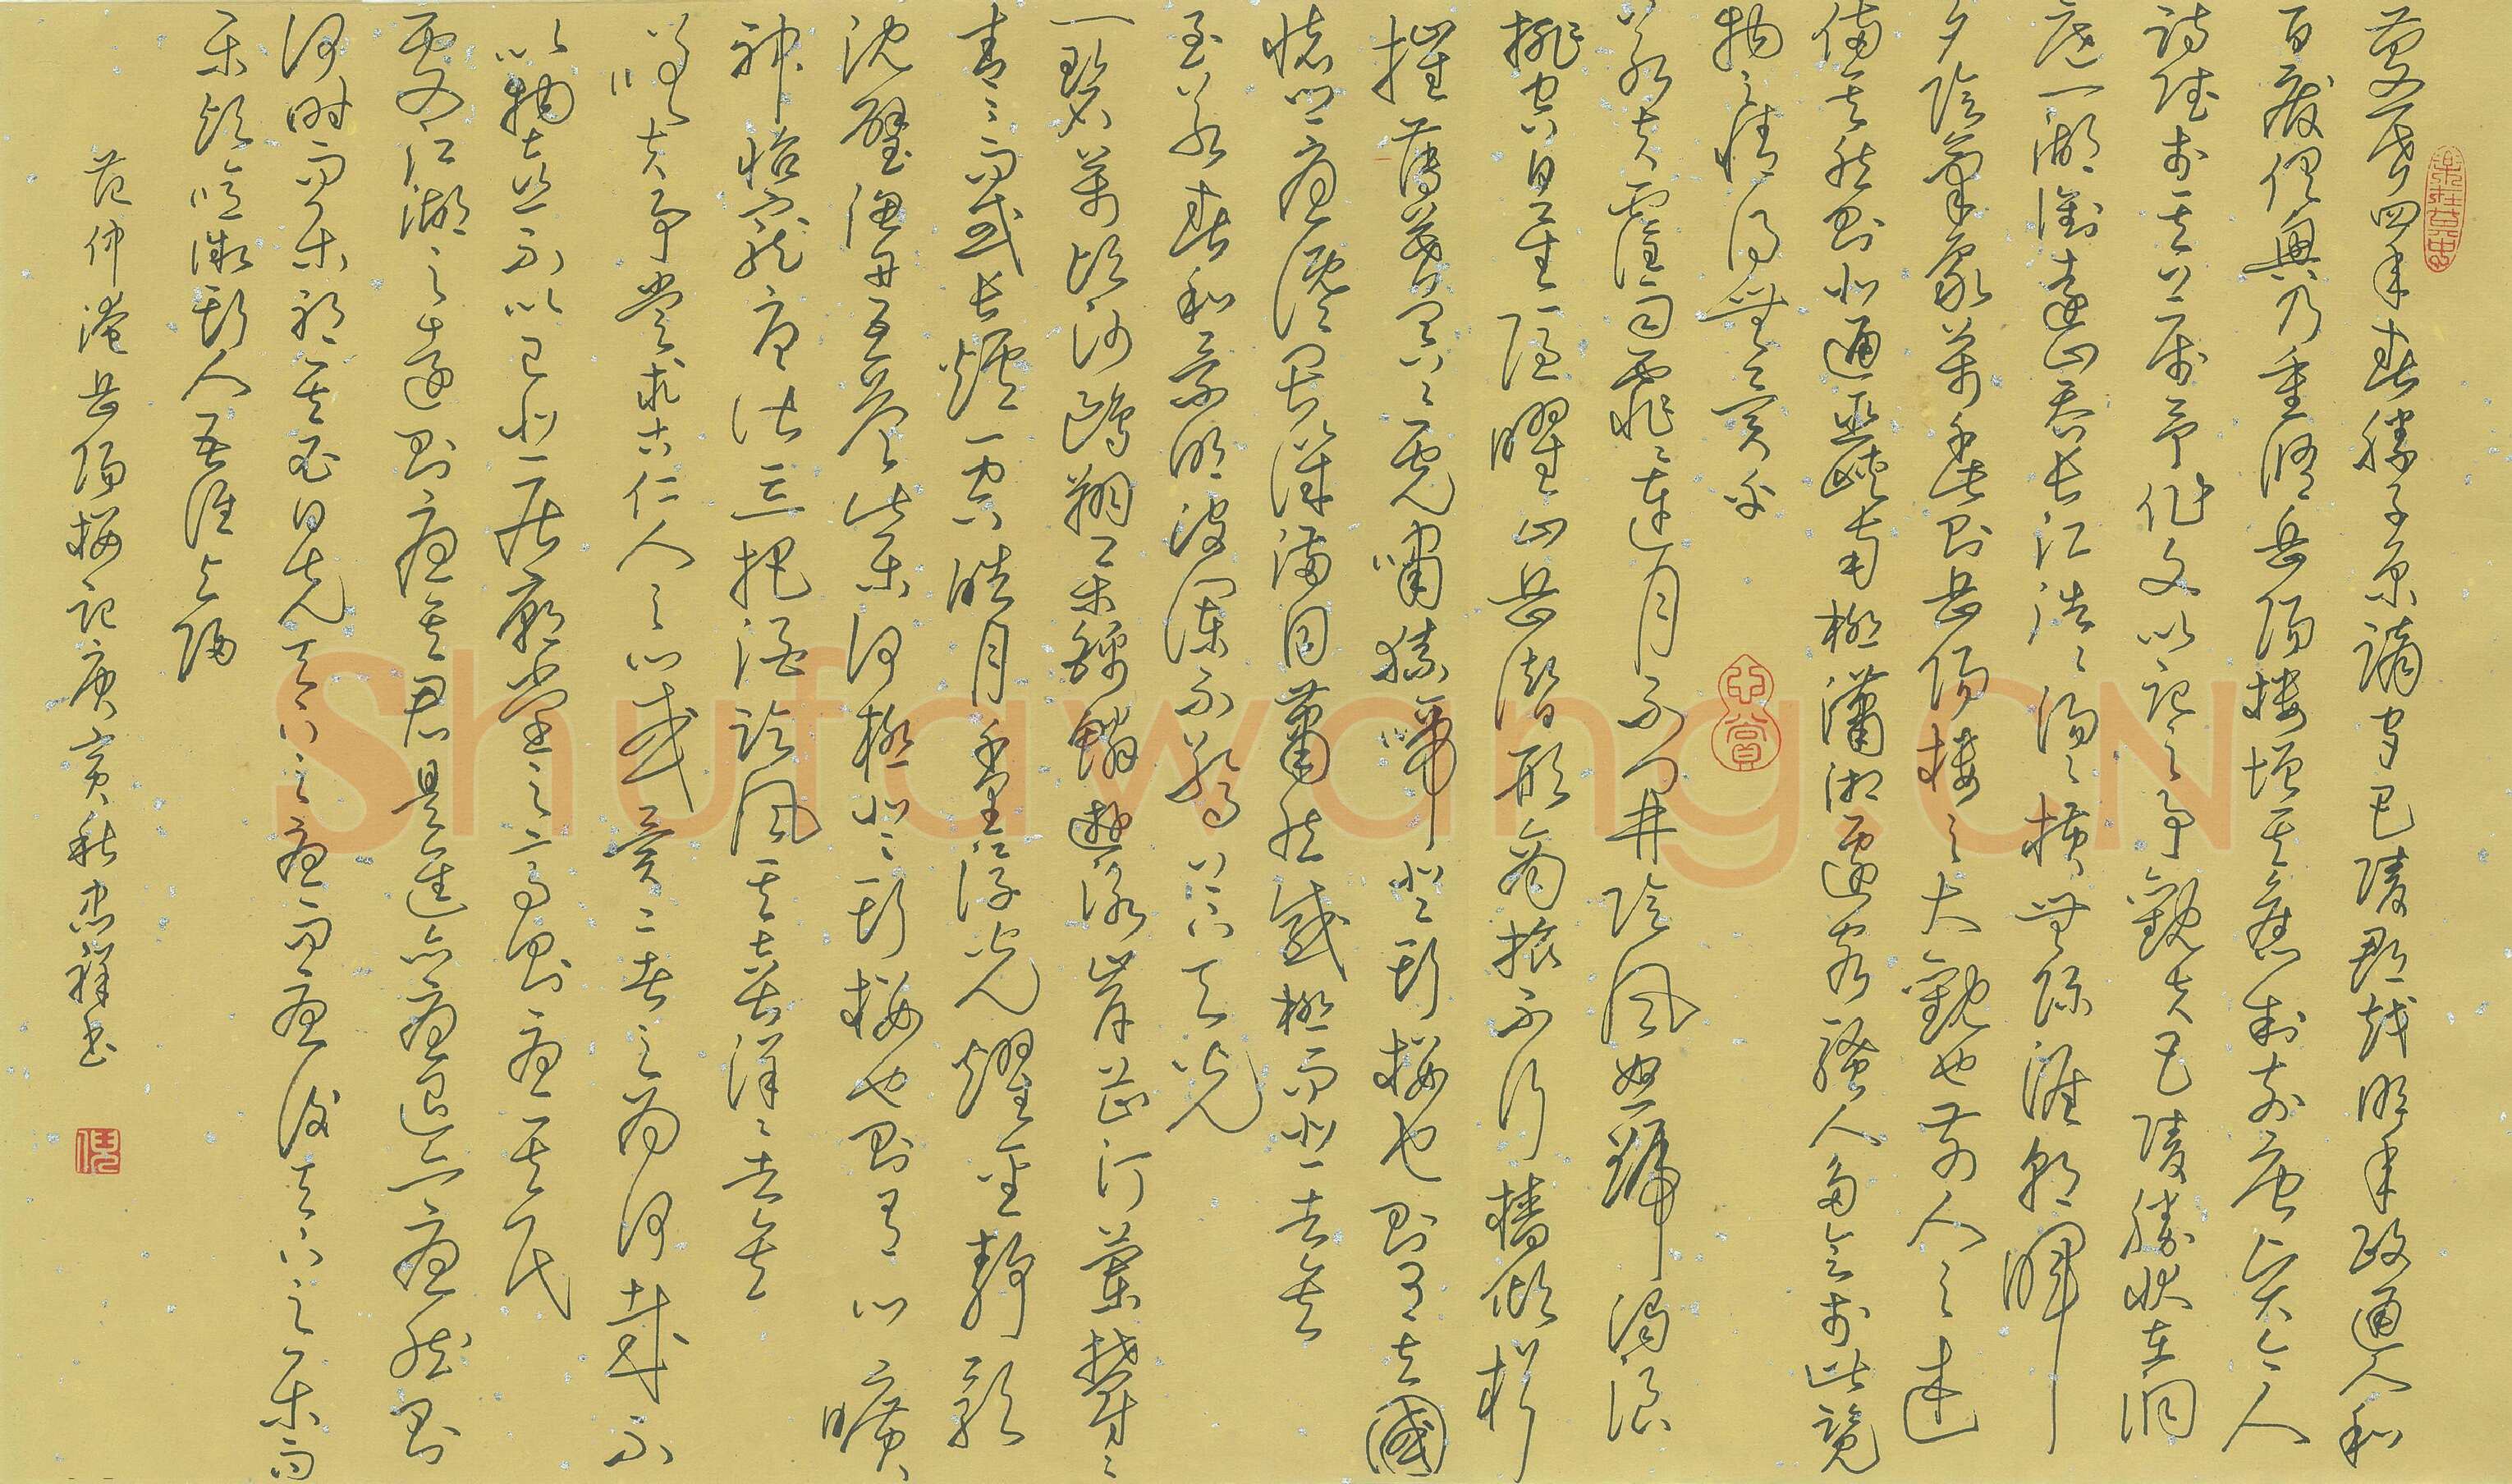 慶曆四年春滕子京謫守巴陵郡越明年政通人和
百廢俱興乃重修岳陽樓增其舊制刻唐賢今人
詩賦於其上屬予作文以記之予觀夫巴陵勝狀在洞
庭一湖銜遠山吞長江浩浩湯湯橫無際涯朝暉
夕陰氣象萬千此則岳陽樓之大觀也前人之述
備矣然則北通巫峽南極瀟湘遷客騷人多會於此覽
物之情得無異乎
若夫霪雨霏霏連月不開陰風怒號濁浪
排空日星隱曜山岳潛形商旅不行檣傾楫
摧薄暮冥冥虎嘯猿啼登斯樓也則有去國
懷鄉憂讒畏譏滿目蕭然感極而悲者矣
至若春和景明波瀾不驚上下天光
一碧萬頃沙鷗翔集錦鱗遊泳岸芷汀蘭鬱鬱
青青而或長煙一空皓月千里浮光耀金靜影
沈璧漁歌互答此樂何極登斯樓也則有心曠
神怡寵辱皆忘把酒臨風其喜洋洋者矣
嗟夫予嘗求古仁人之心或異二者之為何哉不
以物喜不以己悲居廟堂之高則憂其民
處江湖之遠則憂其君是進亦憂退亦憂然則
何時而樂耶其必曰先天下之憂而憂後天下之樂而
樂歟噫微斯人吾誰與歸
范仲淹岳陽樓記庚寅秋忠祥書
Shufawang.CN